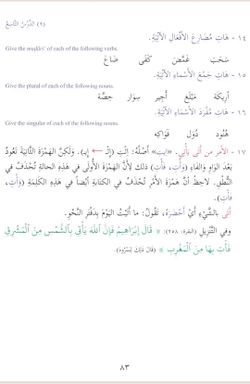 (٩) الدَّرْسُ التَّاسِعُ
١٤ - هَاتِ مُضَارِعَ الأَفْعَالِ الآتِيَةِ.
Give the muḍāri' of each of the following verbs.
سَحَبَ غَمَّضَ كَفَى ضَاعَ
١٥ - هَاتِ جَمْعَ الأَسْمَاءِ الآتِيَةِ.
Give the plural of each of the following nouns.
أَرِيكَة مَبْلَغ أَجِير سِوَار حِصَّة
١٦ - هَاتِ مُفْرَدَ الأَسْمَاءِ الآتِيَةِ.
Give the singular of each of the following nouns.
هُنُود دُوَل فَوَاكِه
١٧ - الأمر من أَتَى يَأْتِي: «اِيتِ» أَصْلُهُ: اِئْتِ (اِئْـ ← اِيـ). وَلَكِنَّ الْهَمْزَةَ الثَّانِيَةَ تَعُودُ
بَعْدَ الْوَاوِ وَالْفَاءِ (وَأْتِ، فَأْتِ) ذلك لأَنَّ الْهَمْزَةَ الأُولَى فِي هَذِهِ الْحَالَةِ تُحْذَفُ فِي
النُّطْقِ. لاحِظْ أَنَّ هَمْزَةَ الأَمْرِ تُحْذَفُ فِي الكتابةِ أَيْضاً فِي هَذِهِ الكَلِمَةِ (وَأْتِ،
فَأْتِ).
أَتَى بِالشَّيْءِ أَيْ أَحْضَرَهُ، تَقُولُ: مَا أَتَيْتُ الْيَوْمَ بِدَفْتَرِ النَّحْوِ.
وَفِي التَّنْزِيلِ (البقرة: ٢٥٨): ﴿ قَالَ إِبْرَاهِيمُ فَإِنَّ اللَّهَ يَأْتِي بِالشَّمْسِ مِنَ الْمَشْرِقِ
فَأْتِ بِهَا مِنَ الْمَغْرِبِ ﴾ (قال ذلك لِنُمْرُودَ).
٨٣